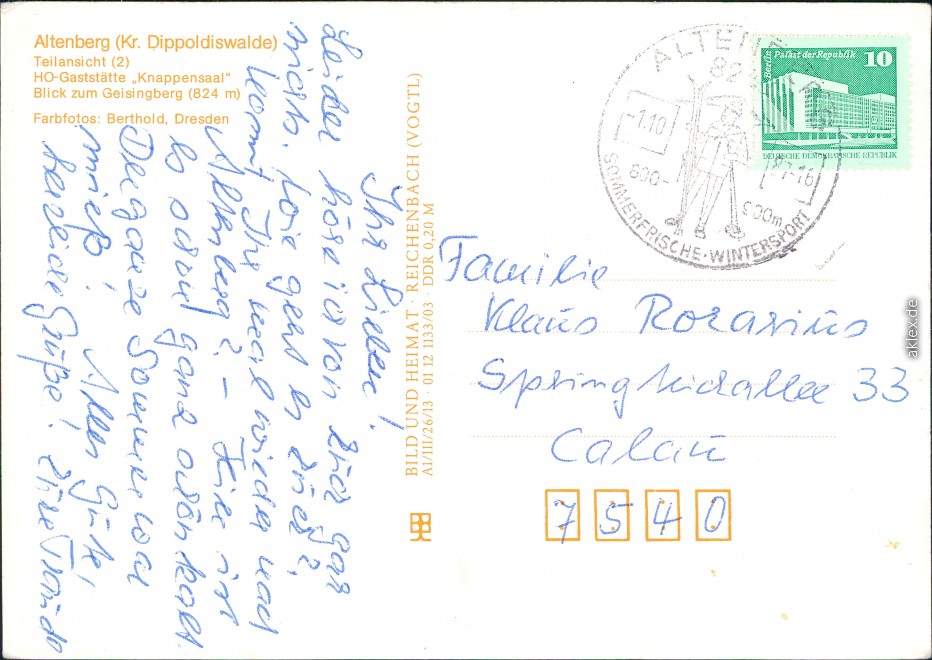 Altenberg (Kr. Dippoldiswalde)
Teilansicht (2)
HO-Gaststätte „Knappensaal"
Blick zum Geisingberg (824 m)
Farbfotos: Berthold, Dresden
Ihr Lieben!
Leider höre ich von Euch gar
nichts. Wie geht es Euch?
Kommt Ihr mal wieder nach
Altenberg? - Hier ist
es schon ganz schön kalt.
Der ganze Sommer war
mies! Alles Gute,
herzliche Grüße! Eure Traudo
BILD UND HEIMAT · REICHENBACH (VOGTL)
A1/III/26/13 · 01 12 1133/03 · DDR 0,20 M
ALTENBERG
82
-1.10
87-16
800-
900m
SOMMERFRISCHE·WINTERSPORT
Berlin Palast der Republik 10
DEUTSCHE DEMOKRATISCHE REPUBLIK
Familie
Klaus Rozarius
Springteichallee 33
Calau
7540
aklex.de